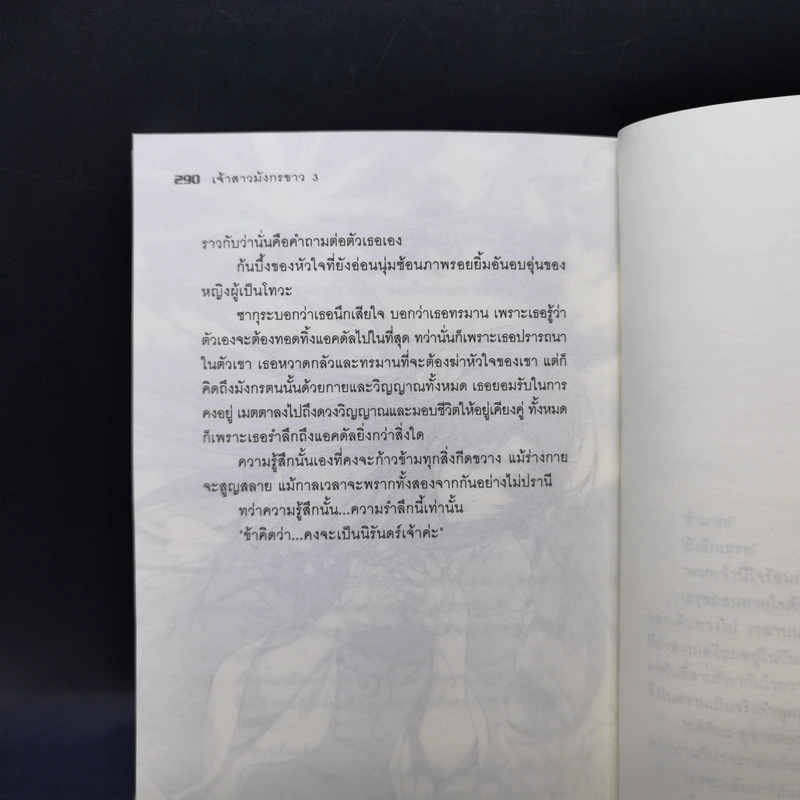 290 เจ้าสาวมังกรขาว 3
ราวกับว่านั่นคือคำถามต่อตัวเธอเอง
ก้นบึ้งของหัวใจที่ยังอ่อนนุ่มซ้อนภาพรอยยิ้มอันอบอุ่นของ
หญิงผู้เป็นโทวะ
ซากุระบอกว่าเธอนึกเสียใจ บอกว่าเธอทรมาน เพราะเธอรู้ว่า
ตัวเองจะต้องทอดทิ้งแอคดัลไปในที่สุด ทว่านั่นก็เพราะเธอปรารถนา
ในตัวเขา เธอหวาดกลัวและทรมานที่จะต้องฆ่าหัวใจของเขา แต่ก็
คิดถึงมังกรตนนั้นด้วยกายและวิญญาณทั้งหมด เธอยอมรับในการ
คงอยู่ เมตตาลงไปถึงดวงวิญญาณและมอบชีวิตให้อยู่เคียงคู่ ทั้งหมด
ก็เพราะเธอรำลึกถึงแอคดัลยิ่งกว่าสิ่งใด
ความรู้สึกนั้นเองที่คงจะก้าวข้ามทุกสิ่งกีดขวาง แม้ร่างกาย
จะสูญสลาย แม้กาลเวลาจะพรากทั้งสองจากกันอย่างไม่ปรานี
ทว่าความรู้สึกนั้น...ความรำลึกนี้เท่านั้น
"ข้าคิดว่า...คงจะเป็นนิรันดร์เจ้าค่ะ"